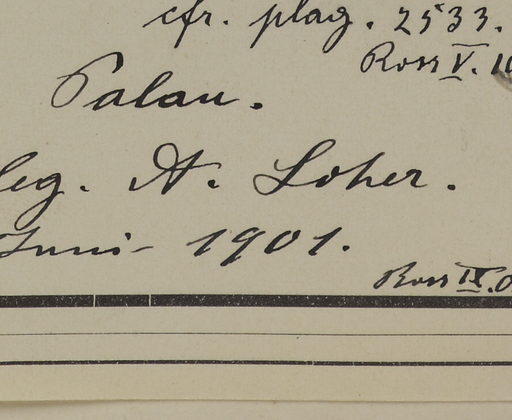 cfr. plag. 2533.
Ross V.
Palau.
leg. A. Loher.
Juni 1901.
Ross IX.